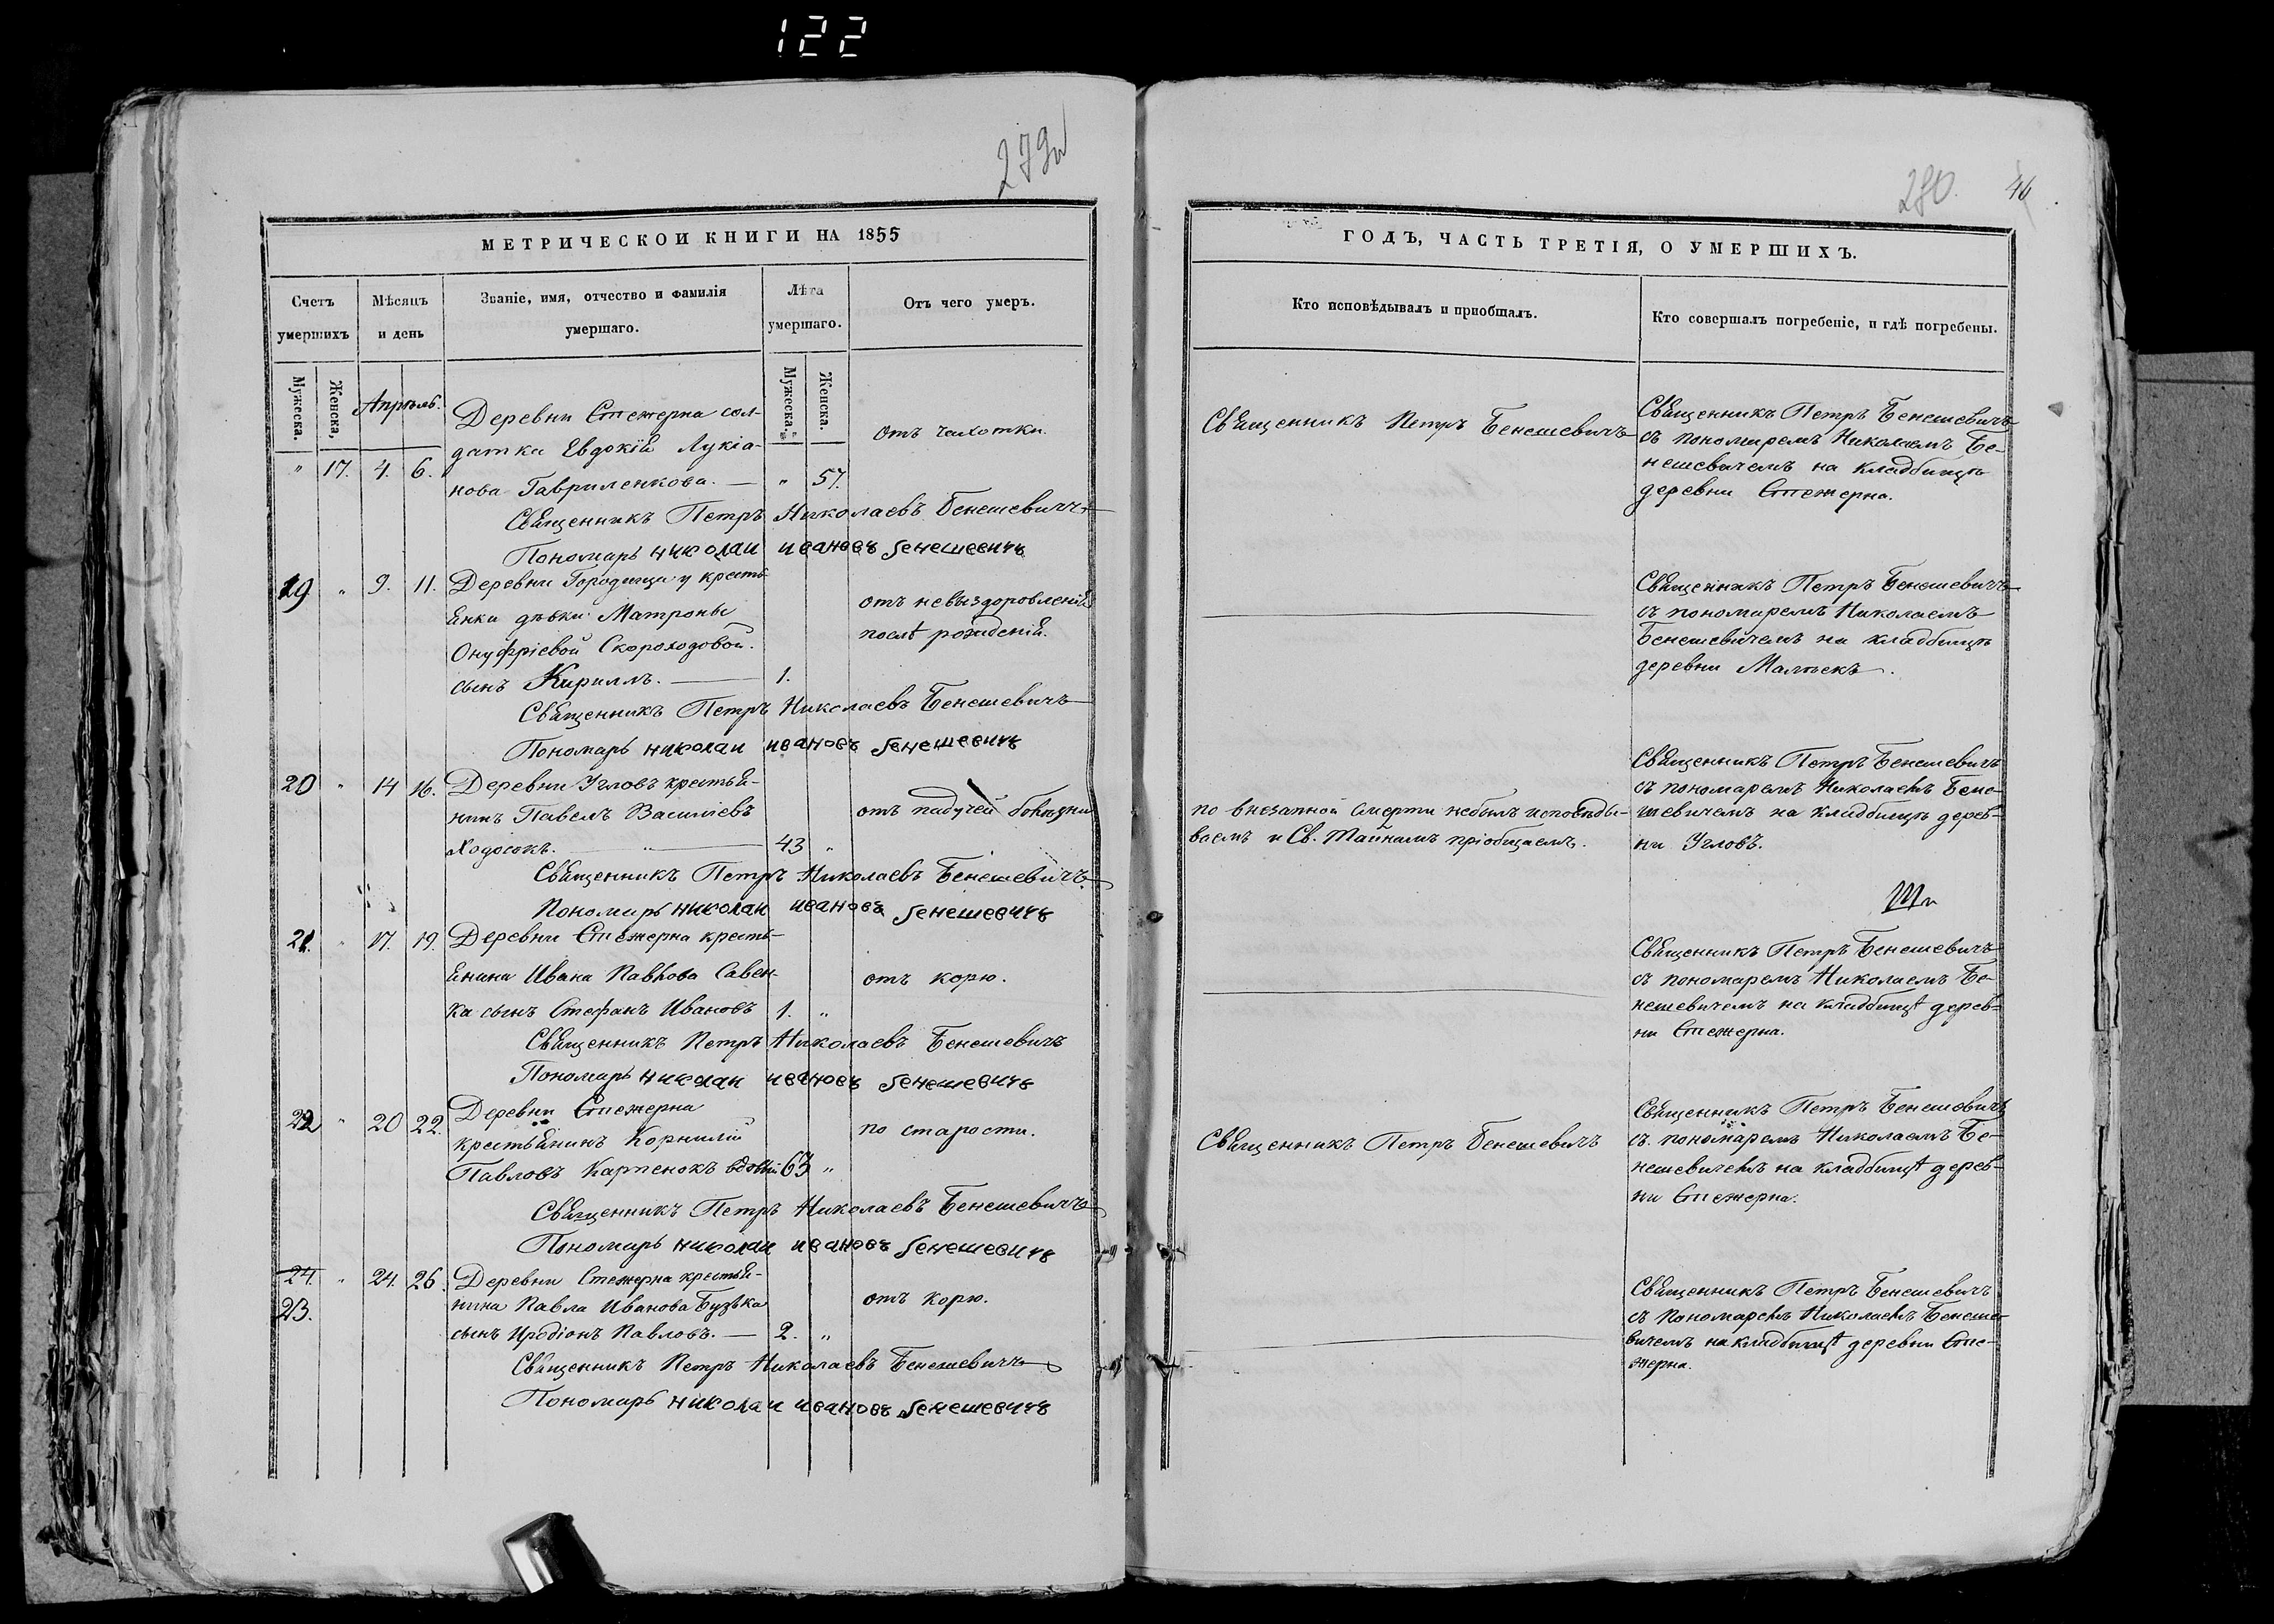 122
279
280. 46
МЕТРИЧЕСКОЙ КНИГИ НА 1855
Счетъ умершихъ
Мѣсяцъ и день
Званіе, имя, отчество и фамилія умершаго.
Лѣта умершаго.
Отъ чего умеръ.
Мужеска.
Женска,
Мужеска.
Женска.
Апрѣль.
Деревни Стежерна сол-
датка Евдокія Лукіа-
" 17. 4. 6. нова Гавриленкова. — " 57. отъ чахотки.
Священникъ Петръ Николаевъ Бенешевичъ
Пономарь николаи ивановъ бенешевичъ
19 " 9. 11. Деревни Городища крестья-
янки дѣвки Матроны отъ невыздоровленія
Онуфріевой Скороходовой. послѣ рожденія.
сынъ Кириллъ. — 1.
Священникъ Петръ Николаевъ Бенешевичъ
Пономарь николаи ивановъ бенешевичъ
20 " 14 16. Деревни Угловъ крестья-
нинъ Павелъ Василіевъ отъ падучей болѣзни
Ходосокъ. " — 43 "
Священникъ Петръ Николаевъ Бенешевичъ
Пономарь николаи ивановъ бенешевичъ
21. " 17. 19. Деревни Стежерна кресть-
янина Ивана Павлова Савен- отъ корю.
ка сынъ Стефанъ Ивановъ 1. "
Священникъ Петръ Николаевъ Бенешевичъ
Пономарь николаи ивановъ бенешевичъ
22 " 20 22. Деревни Стежерна
крестьянинъ Корнилій по старости.
Павловъ Карпенокъ вдовый 63 "
Священникъ Петръ Николаевъ Бенешевичъ
Пономарь николаи ивановъ бенешевичъ
24. " 24. 26. Деревни Стежерна крестья-
23. нина Павла Иванова Бузька отъ корю.
сынъ Иродіонъ Павловъ. — 2. "
Священникъ Петръ Николаевъ Бенешевичъ
Пономарь николаи ивановъ бенешевичъ
ГОДЪ, ЧАСТЬ ТРЕТІЯ, О УМЕРШИХЪ.
Кто исповѣдывалъ и пріобщалъ.
Кто совершалъ погребеніе, и гдѣ погребены.
Священникъ Петръ Бенешевичъ
Священникъ Петръ Бенешевичъ
съ пономаремъ Николаемъ Бе-
нешевичемъ на кладбищѣ
деревни Стежерна.
Священникъ Петръ Бенешевичъ
съ пономаремъ Николаемъ
Бенешевичемъ на кладбищѣ
деревни Малыекъ.
по внезапной смерти небылъ исповѣды-
ваемъ и Св. Тайнамъ пріобщаемъ.
Священникъ Петръ Бенешевичъ
съ пономаремъ Николаемъ Бене-
шевичемъ на кладбищѣ дерев-
ни Угловъ.
Священникъ Петръ Бенешевичъ
съ пономаремъ Николаемъ Бе-
нешевичемъ на кладбищѣ дерев-
ни Стежерна.
Священникъ Петръ Бенешевичъ
Священникъ Петръ Бенешевичъ
съ пономаремъ Николаемъ Бе-
нешевичемъ на кладбищѣ дерев-
ни Стежерна.
Священникъ Петръ Бенешевичъ
съ Пономаремъ Николаемъ Бенеше-
вичемъ на кладбищѣ деревни Сте-
жерна.